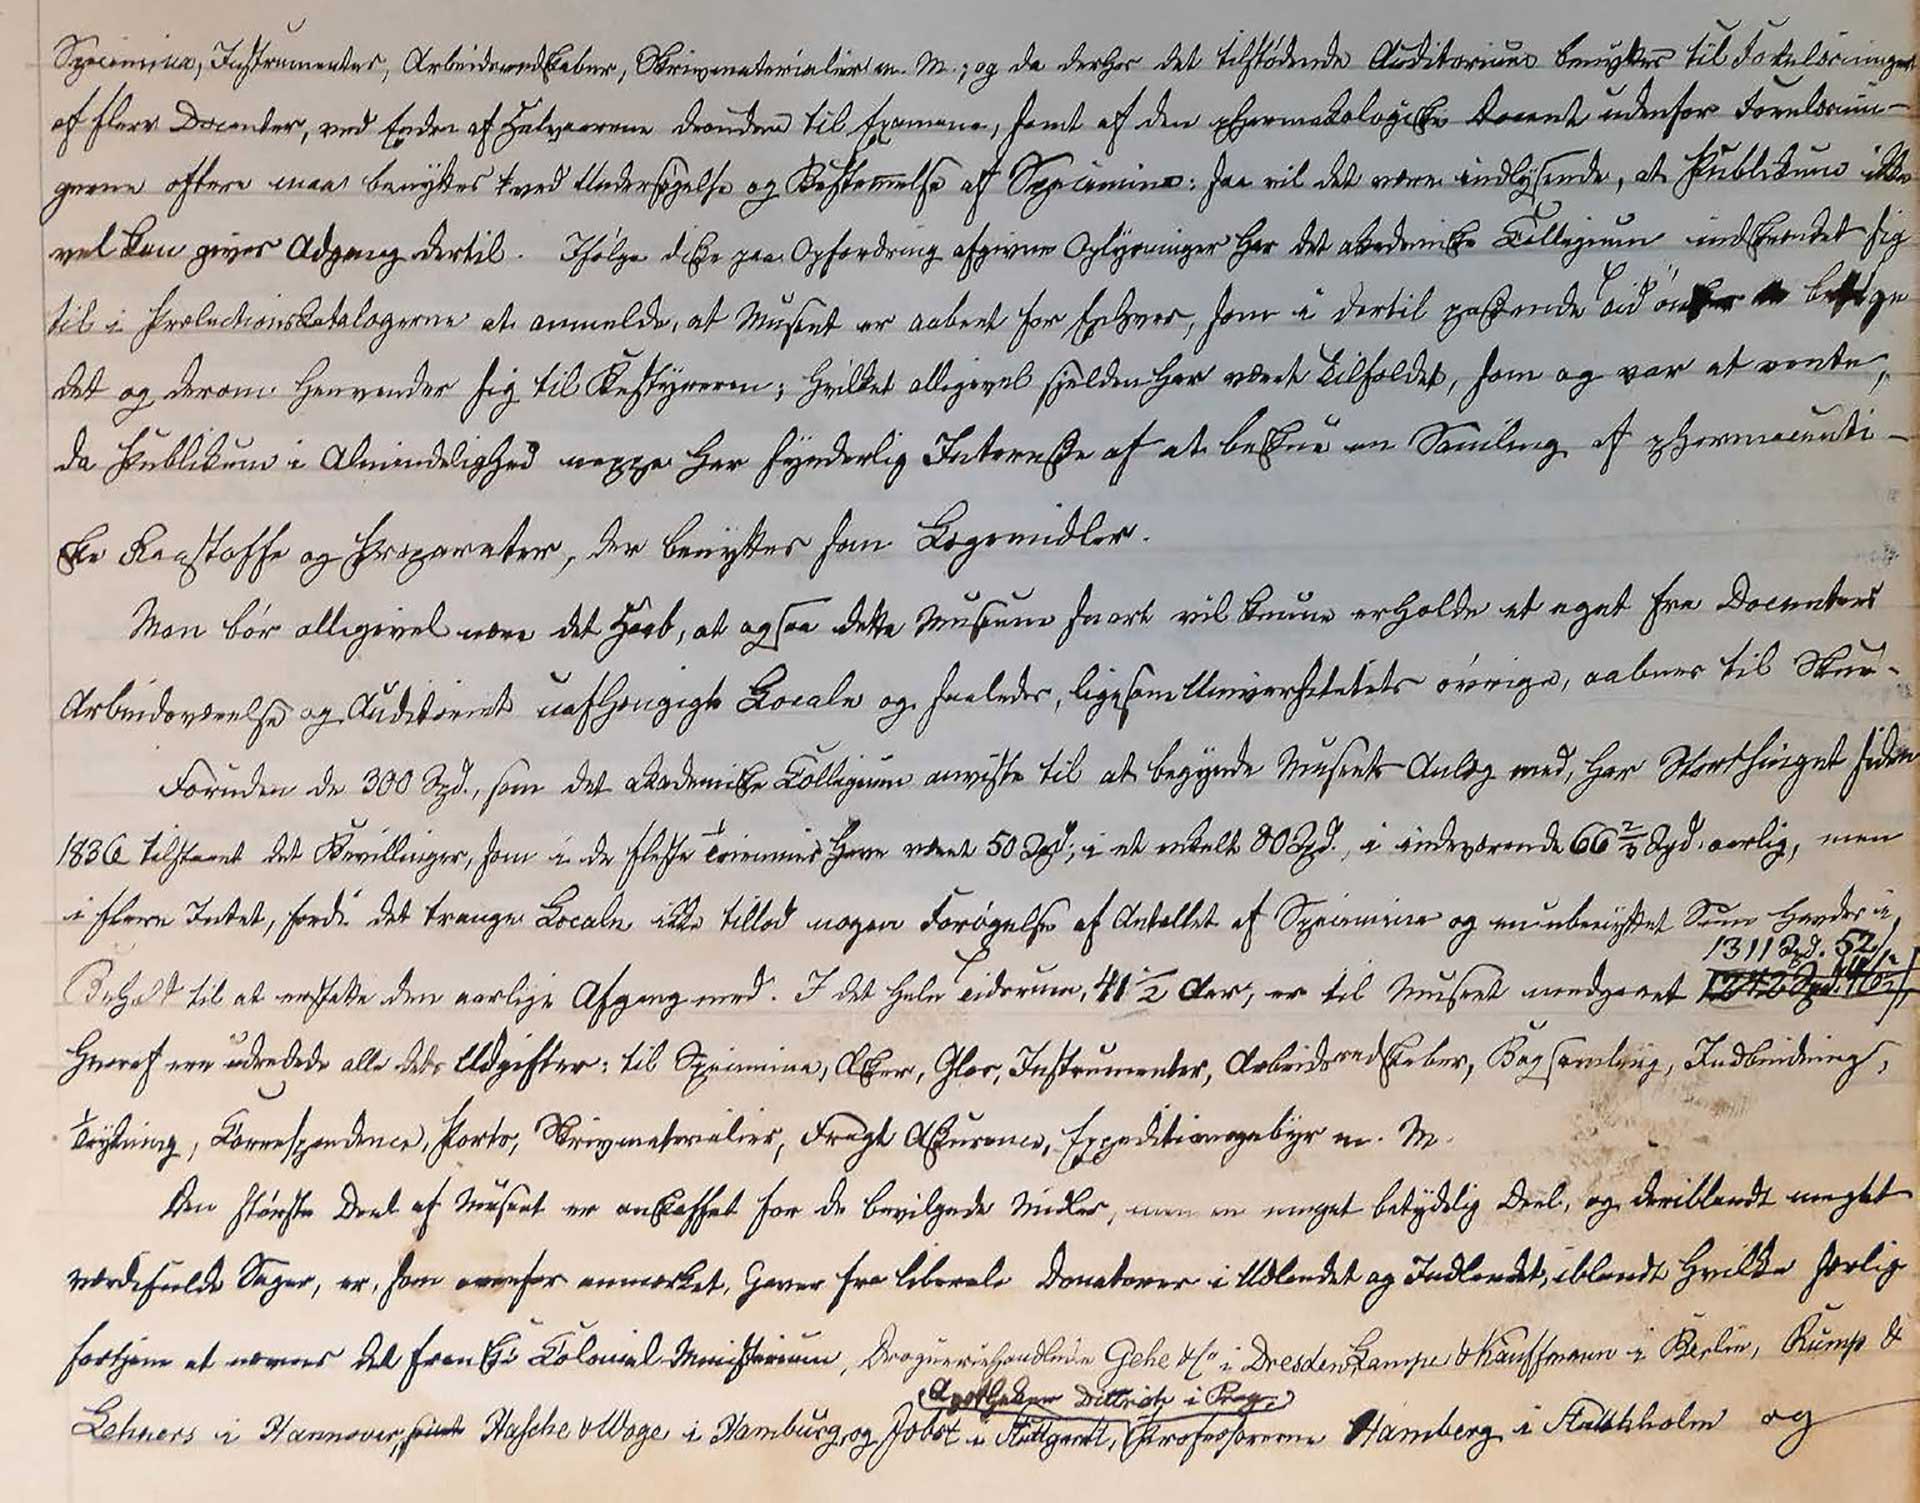 Specimina, Instrumenter, Arbeidsredskaber, Skrivmaterialier m. M.; og da derhos det tilstødende Auditorium benyttes til Forelæsninger
af flere Docenter, ved Enden af Halvaarene desuden til Examina, samt af den pharmakologiske Docent udenfor Forelæsnin-
gerne oftere maa benyttes ved Undersøgelse og Bestemmelse af Specimina: saa vil det være indlysende, at Publikum ikke
vel kan gives Adgang dertil. Ifølge disse paa Opfordring afgivne Oplysninger har det akademiske Collegium indskrænket sig
til i Prælectionskatalogerne at anmelde, at Museet er aabent for Enhver, som i dertil passende Tid ønsker at besøge
det og derom henvender sig til Bestyreren; hvilket alligevel sjelden har været Tilfældet, som og var at vente,
da Publikum i Almindelighed neppe har synderlig Interesse af at beskue en Samling af pharmaceuti-
ske Raastoffe og Præparater, der benyttes som Lægemidler.
Man bør alligevel nære det Haab, at ogsaa dette Museum snart vil kunne erholde et eget fra Docentens
Arbeidsværelse og Auditoriet uafhængigt Locale og saaledes, ligesom Universitetets øvrige, aabnes til Skue.
Foruden de 300 Spd., som det akademiske Collegium anviste til at begynde Museets Anlæg med, har Storthinget siden
1836 tilstaaet det Bevillinger, som i de fleste Triennier have været 50 Spd.; i et enkelt 80 Spd., i indeværende 66 2/3 Spd. aarlig, men
i flere Intet, fordi det trange Locale ikke tillod nogen Forøgelse af Antallet af Specimina og en ubenyttet Sum havdes i
1311 Spd. 52
Behold til at erstatte den aarlige Afgang med. I det hele Tidsrum, 41 1/2 Aar, er til Museet medgaaet
hvoraf ere udredede alle dets Udgifter: til Specimina, Æsker, Glas, Instrumenter, Arbeidsredskaber, Bogsamling, Indbinding,
Trykning, Correspondence, Porto, Skrivmaterialier, Fragt Assurance, Expeditionsgebyr m. M.
Den største Deel af Museet er anskaffet for de bevilgede Midler, men en meget betydelig Deel, og deriblandt meget
værdifulde Sager, er, som ovenfor anmærket, Gaver fra liberale Donatorer i Udlandet og Indlandet, iblandt hvilke særlig
fortjene at nævnes det franske Colonial-Ministerium, Droguerihandlerne Gehe & Co i Dresden, Lampe & Kauffmann i Berlin, Rump &
Apotheker Dittrich i Prag,
Lehners i Hannover, samt Hasche & Woge i Hamburg, og Jobst i Stuttgardt, Professorerne Hamberg i Stockholm og